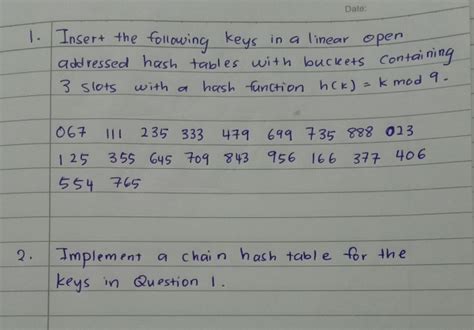 Date:
1. Insert the following keys in a linear open
addressed hash tables with buckets containing
3 slots with a hash function h(k) = k mod 9.
067 111 235 333 479 699 735 888 023
125 355 645 709 843 956 166 377 406
554 765
2. Implement a chain hash table for the
keys in Question 1.